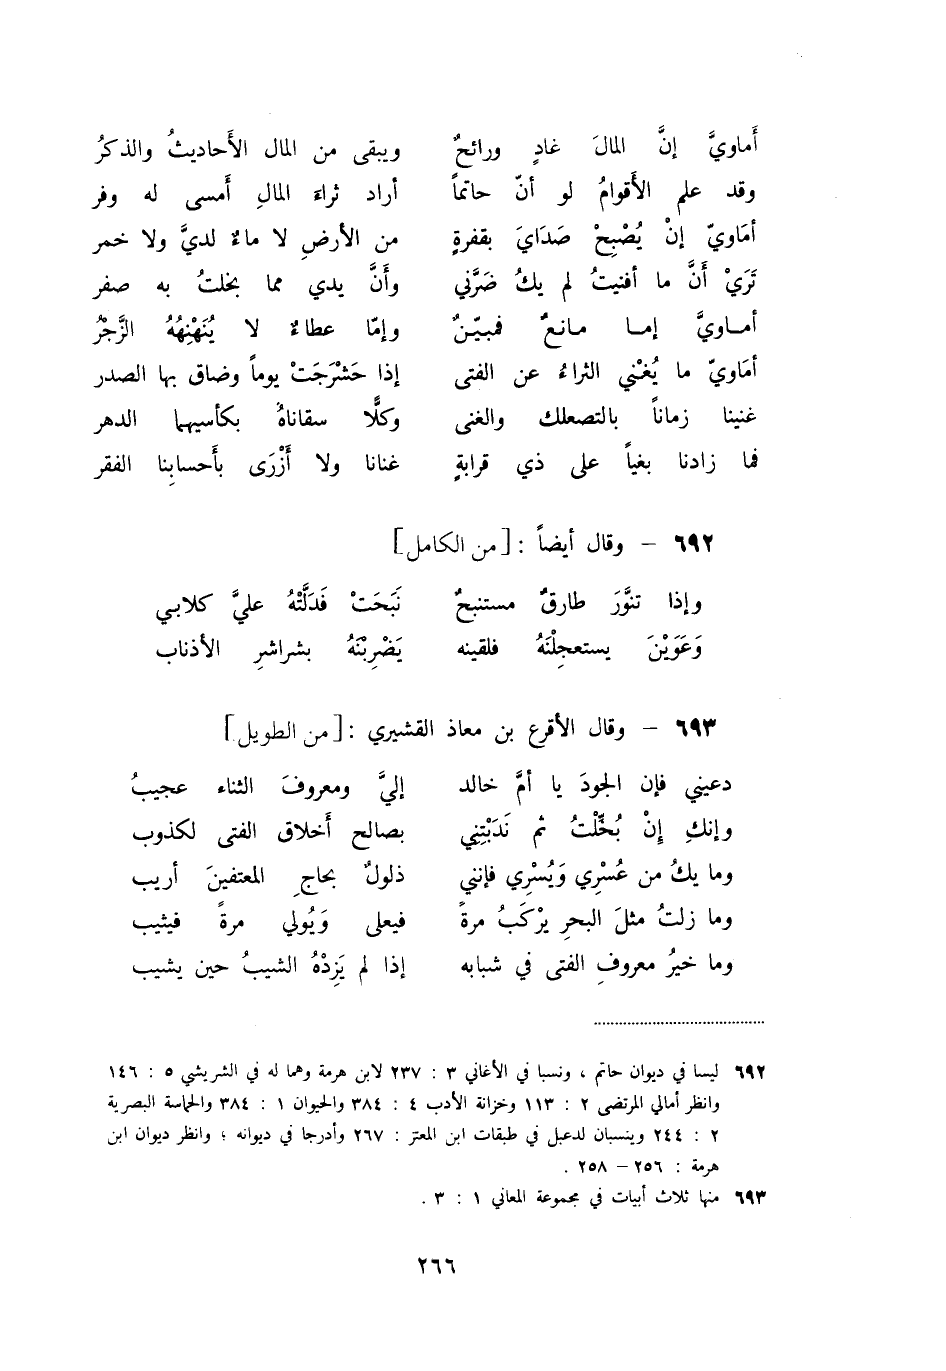 أَماويَّ إنَّ المالَ غادٍ ورائحٌ ويبقى من المال الأَحاديثُ والذكرُ
وقد علم الأَقوامُ لو أنّ حاتماً أراد ثراءَ المالِ أَمسى له وفر
أمَاويّ إنْ يُصْبِحْ صَدَايَ بقفرةٍ من الأرضِ لا ماءٌ لديَّ ولا خمر
تَرَيْ أَنَّ ما أفنيتُ لم يكُ ضَرَّني وأنَّ يدي مما بخلتُ به صفر
أماويَّ إما مانعٌ فمبيّنٌ وإمّا عطاءٌ لا يُنَهْنِهُهُ الزَّجْرُ
أمَاويّ ما يُغْني الثراءُ عن الفتى إذا حَشْرَجَتْ يوماً وضاق بها الصدر
غنينا زماناً بالتصعلك والغنى وكلًّا سقاناهُ بكأسيهما الدهر
فما زادنا بغياً على ذي قرابةٍ غنانا ولا أَزْرَى بأَحسابِنا الفقر
٦٩٢ – وقال أيضاً : [من الكامل]
وإذا تنوَّرَ طارقٌ مستنبحٌ نَبَحَتْ فَدَلَّتْهُ عليَّ كلابي
وَعَوَيْنَ يستعجِلْنَهُ فلقينه يَضْرِبْنَهُ بشراشرِ الأذناب
٦٩٣ – وقال الأقرع بن معاذ القشيري : [من الطويل]
دعيني فإن الجودَ يا أمَّ خالد إليَّ ومعروفَ الثناء عجيبُ
وإنكِ إنْ بُخِّلْتُ ثم نَدَبْتِنِي بصالح أَخلاق الفتى لكذوب
وما يكُ من عُسْرِي وَيُسْرِي فإنني ذلولٌ بحاجِ المعتفينَ أريب
وما زلتُ مثلَ البحرِ يرْكَبُ مرةً فيعلى وَيُولي مرةً فيثيب
وما خيرُ معروفِ الفتى في شبابه إذا لم يَزِدْهُ الشيبُ حين يشيب
٦٩٢ ليسا في ديوان حاتم ، ونسبا في الأغاني ٣ : ٢٣٧ لابن هرمة وهما له في الشريشي ٥ : ١٤٦
وانظر أمالي المرتضى ٢ : ١١٣ وخزانة الأدب ٤ : ٣٨٤ والحيوان ١ : ٣٨٤ والحماسة البصرية
٢ : ٢٤٤ وينسبان لدعبل في طبقات ابن المعتز : ٢٦٧ وأدرجا في ديوانه ؛ وانظر ديوان ابن
هرمة : ٢٥٦ – ٢٥٨ .
٦٩٣ منها ثلاث أبيات في مجموعة المعاني ١ : ٣ .
٢٦٦